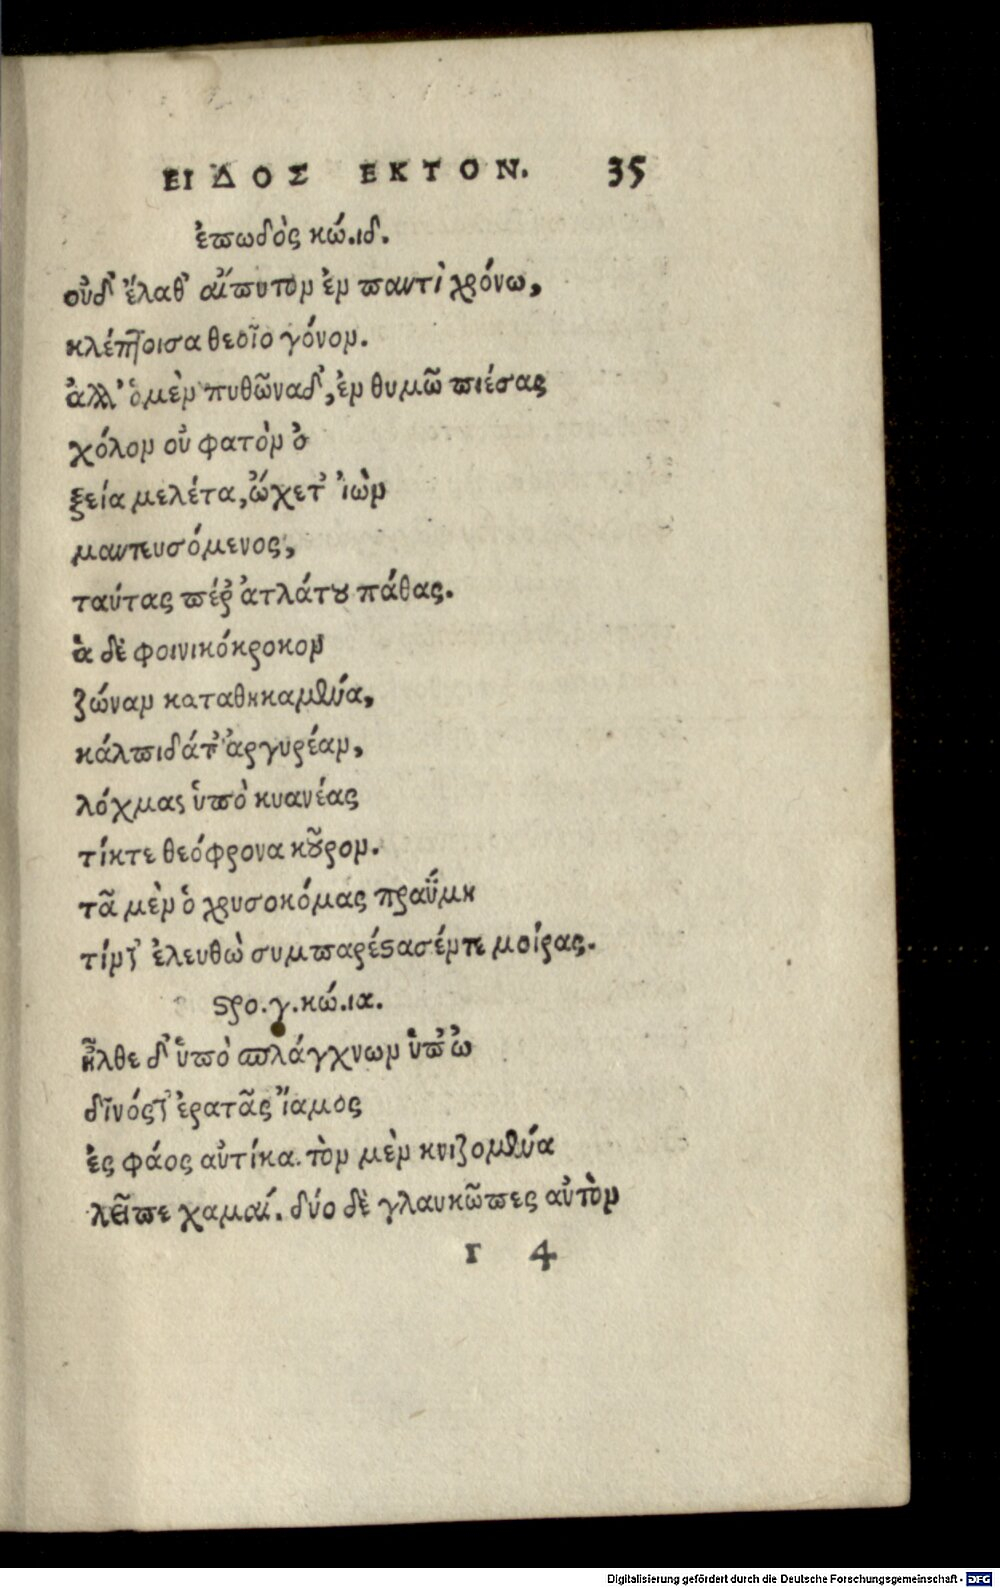 ΕΙΔΟΣ ΕΚΤΟΝ. 35
ἐπωδὸς κώ.ιδ.
οὐδ' ἔλαθ' αἴπυτον ἐν παντὶ χρόνω,
κλέπτοισα θεοῖο γόνον.
ἀλλ' ὁ μὲν πυθῶναδ', ἐν θυμῶ πιέσας
χόλον οὐ φατὸν ὀ
ξεία μελέτα, ᾤχετ' ἰὼν
μαντευσόμενος,
ταύτας περ ἀτλάτου πάθας.
ἁ δὲ φοινικόκροκον
ζώναν καταθηκαμένα,
κάλπιδά τ' ἀργυρέαν,
λόχμας ὑπὸ κυανέας
τίκτε θεόφρονα κοῦρον.
τᾶ μὲν ὁ χρυσοκόμας πραΰμη
τίν τ' ἐλευθὼ συμπαρέστασέν τε μοίρας.
στρο.γ.κώ.ια.
ἦλθε δ' ὑπὸ σπλάγχνων ὑπ' ὠ
δῖνός τ' ἐρατᾶς ἴαμος
ἐς φάος αὐτίκα. τὸν μὲν κνιζομένα
λεῖπε χαμαί. δύο δὲ γλαυκῶπες αὐτὸν
Γ 4
Digitalisierung gefördert durch die Deutsche Forschungsgemeinschaft - DFG